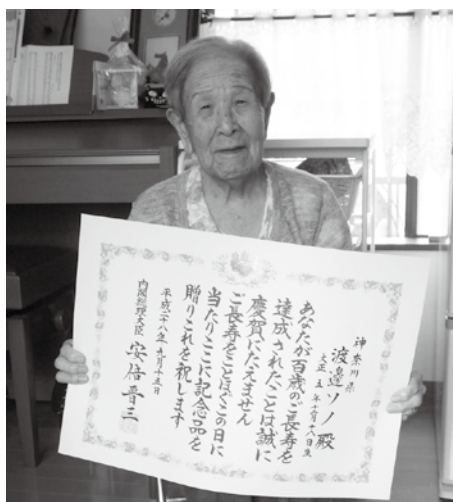 神奈川県
渡邉ソノ殿
大正五年十月十八日生
あなたが百歳のご長寿を
達成されたことは誠に
慶賀にたえません
ご長寿をことほぐこの日に
当たりここに記念品を
贈りこれを祝します
平成二十八年九月十五日
内閣総理大臣 安倍晋三